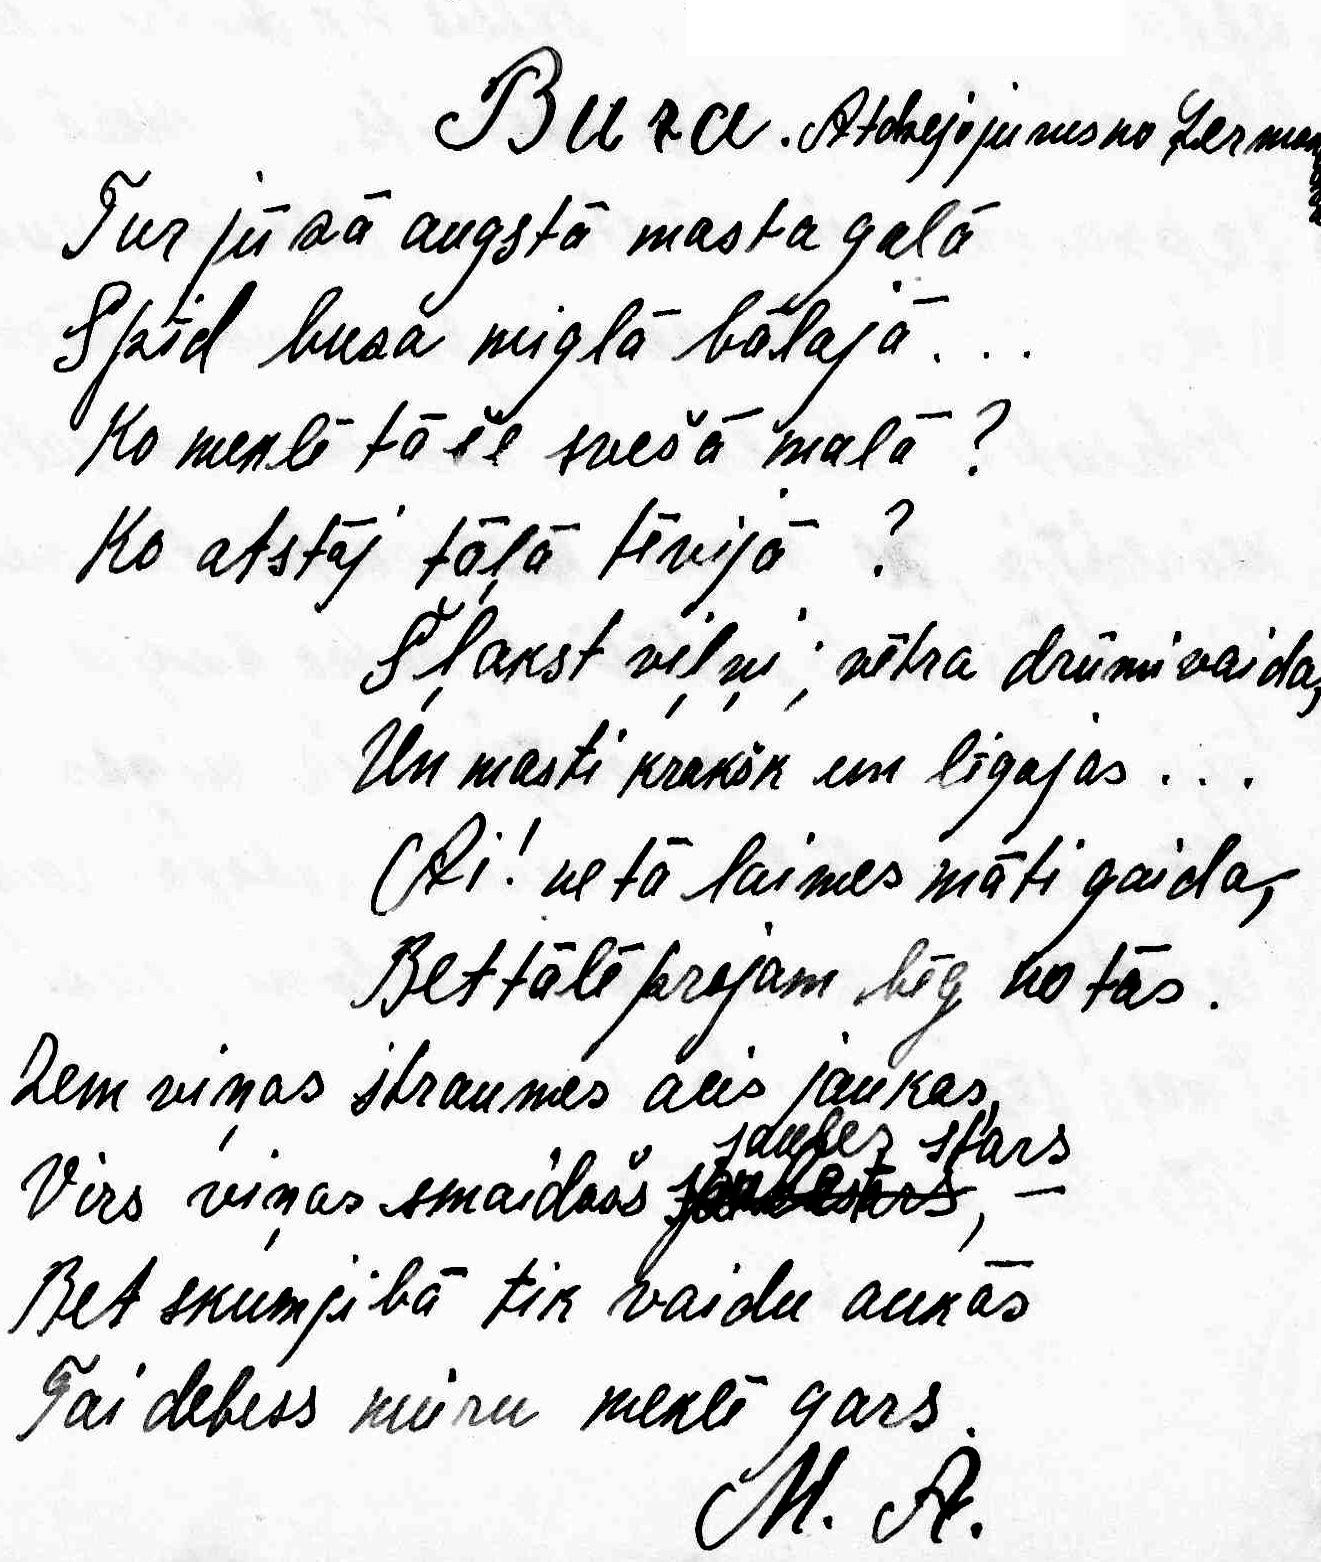 Bura. Atdzejojums no Lermon
Tur jūrā augstā masta galā
Spīd bura miglā bālajā...
Ko meklē tā še svešā malā?
Ko atstāj tāļā tēvijā?
Šļakst viļņi; vētra drūmi vaida,
Un masti krakšk un līgojas...
Ai! ne tā laimes māti gaida,
Bet tālē projam bēg no tās.
Zem viņas straumes acis jaukas,
saules stars
Virs viņas smaidošs, —
Bet skumjibā tik vaidu aukās
Tai debess mieru meklē gars.
M. A.